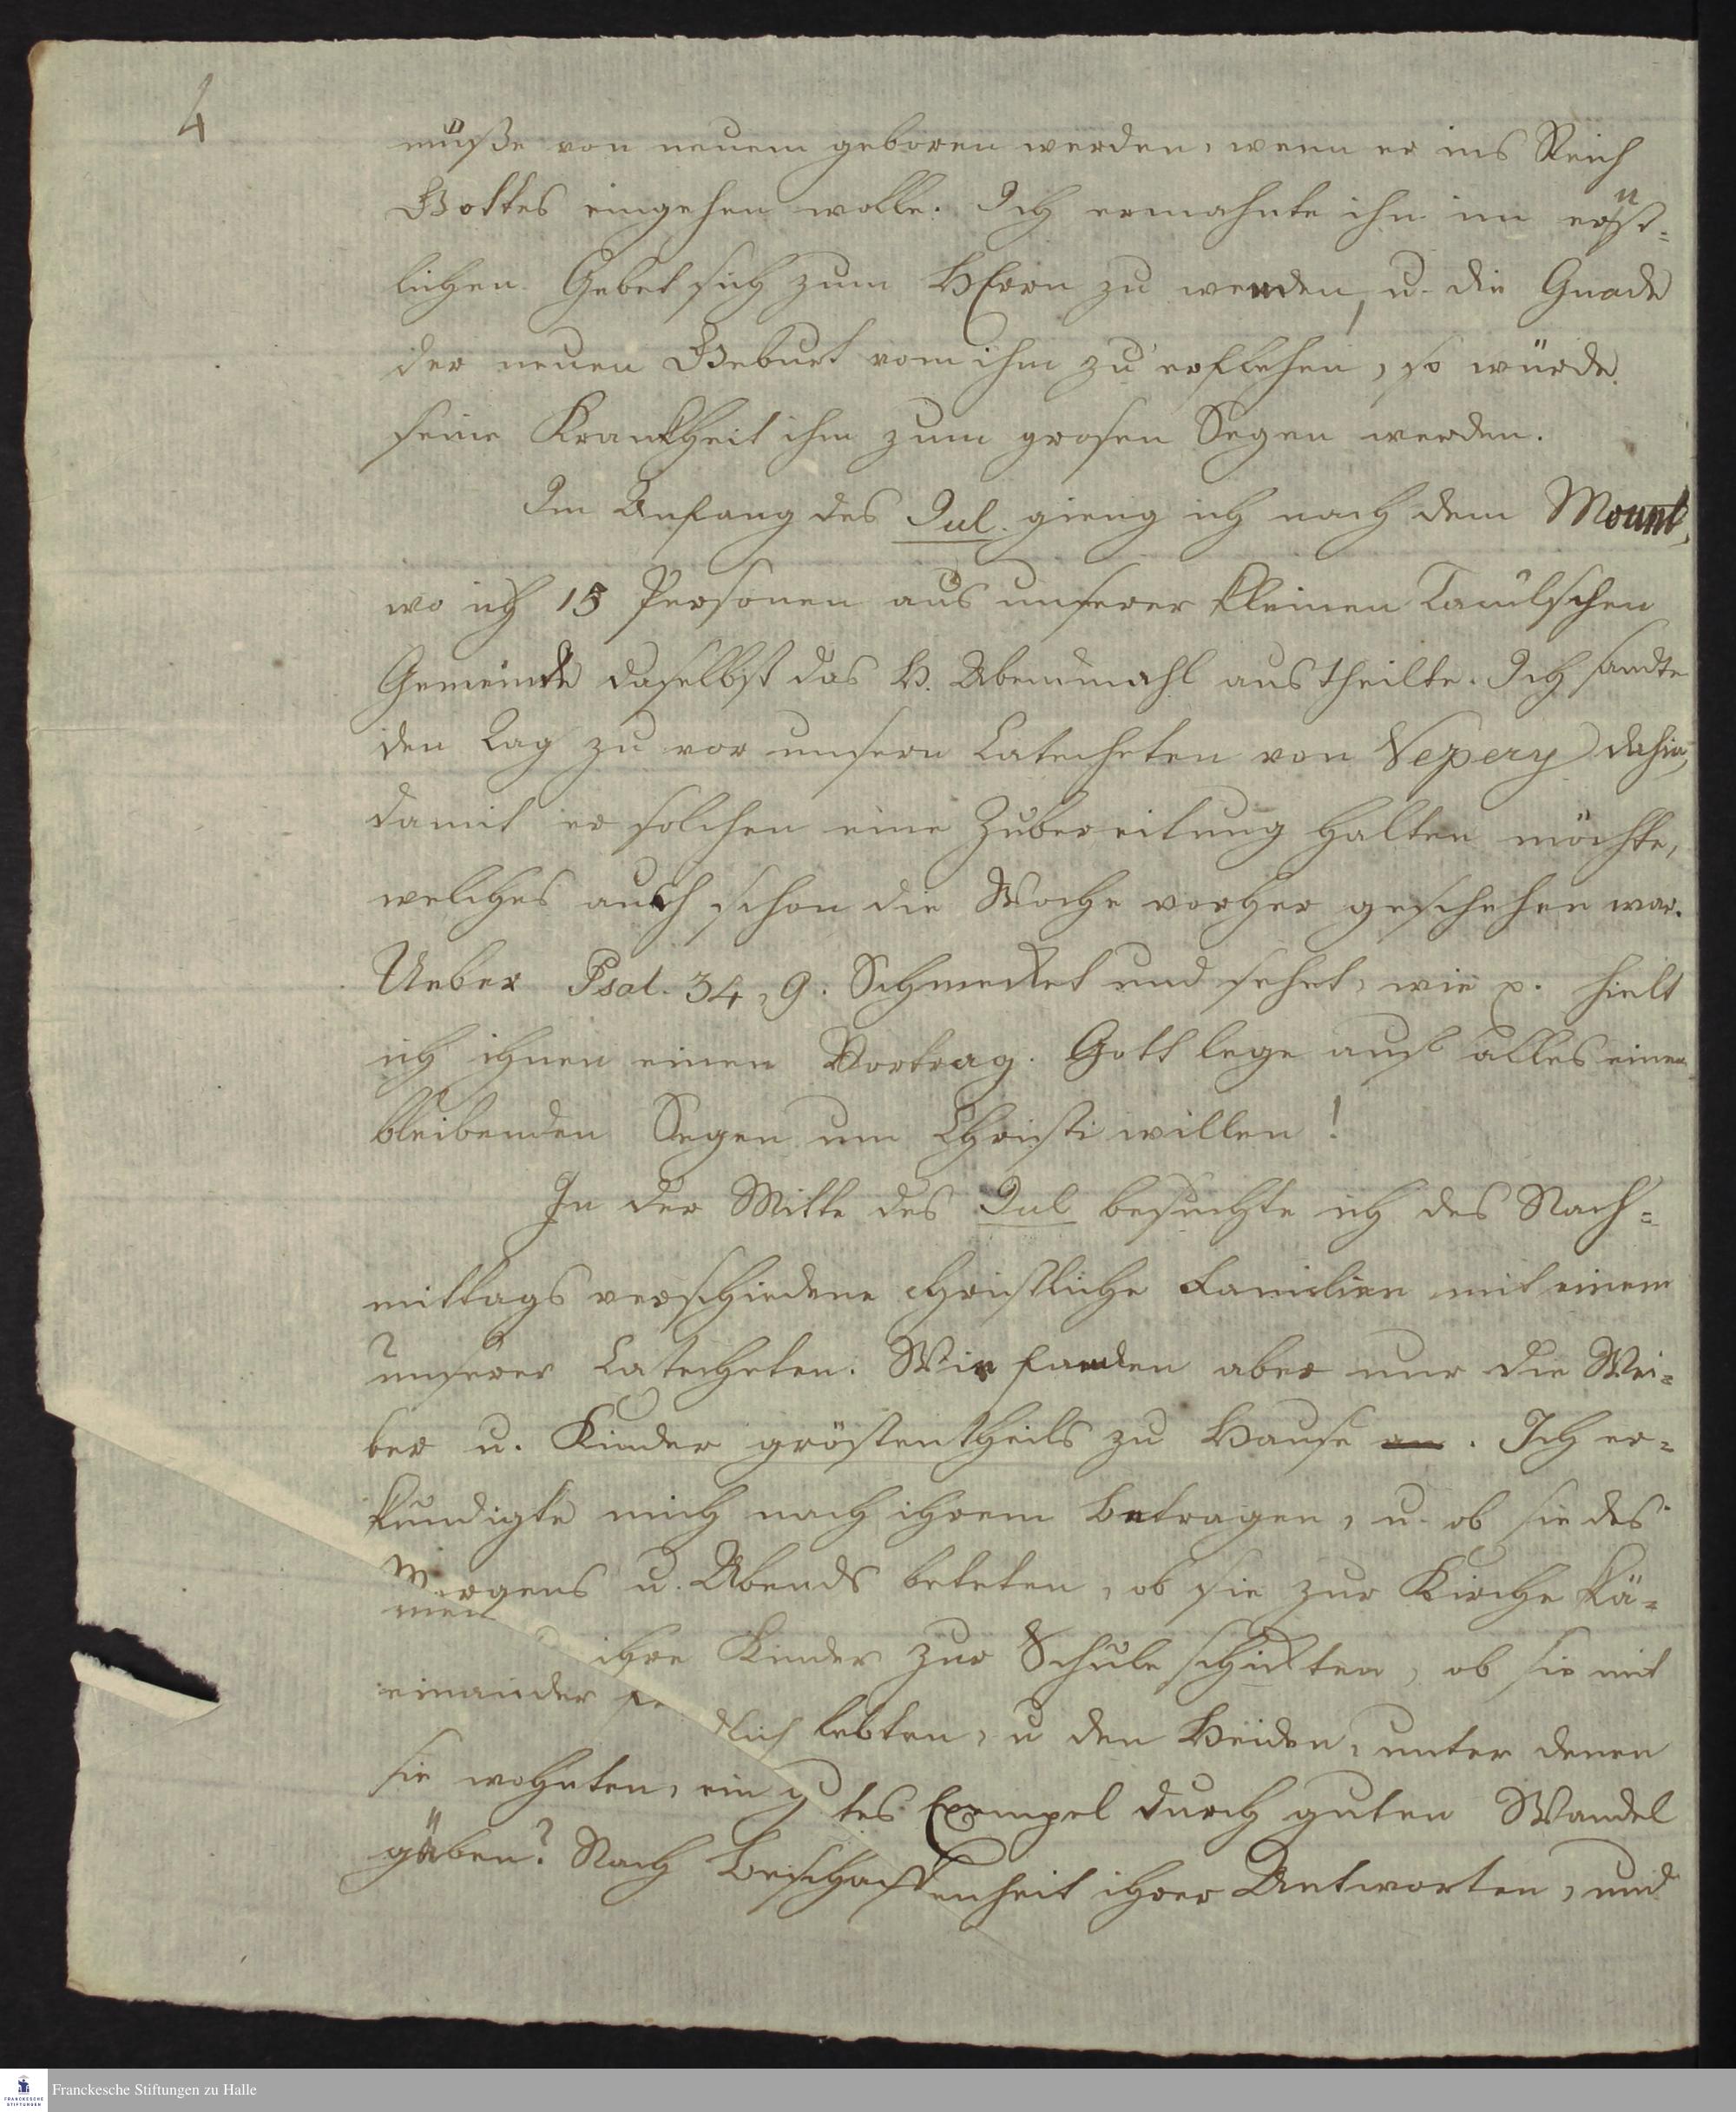 4
müße von neuem geboren werden, wenn er ins Reich
Gottes eingehen wolle. Ich ermahnte ihn im ernst=
lichen Gebet sich zum HErrn zu wenden, u. die Gnade
der neuen Geburt vom ihm zu erflehen, so würde
seine Krankheit ihm zum grosen Segen werden.
Im Anfang des Jul. gieng ich nach dem Mount,
wo ich 15 Personen aus unserer kleinen Tamulschen
Gemeinde daselbst das H. Abendmahl austheilte. Ich sandte
den Tag zu vor unsern Catecheten von Vepery dahin,
damit er solchen eine Zubereitung halten möchte,
welches auch schon die Woche vorher geschehen war.
Ueber Psal. 34, 9. Schmecket und sehet, wie p. hielt
ich ihnen einen Vortrag. Gott lege auf alles einen
bleibenden Segen um Christi willen!
In der Mitte des Jul besuchte ich des Nach=
mittags verschiedene christliche Familien mit einem
unserer Catecheten. Wir fanden aber nur die Wei=
ber u. Kinder gröstentheils zu Hause an. Ich er=
kundigte mich nach ihrem Betragen, u. ob sie des
Morgens u. Abends beteten, ob sie zur Kirche kä=
men ihre Kinder zur Schule schickten, ob sie mit
einander fr dlich lebten, u den Heiden, unter denen
sie wohnten, ein gutes Exempel durch guten Wandel
gäben? Nach Beschaffenheit ihrer Antworten, und
Franckesche Stiftungen zu Halle
FRANCKESCHE
STIFTUNGEN